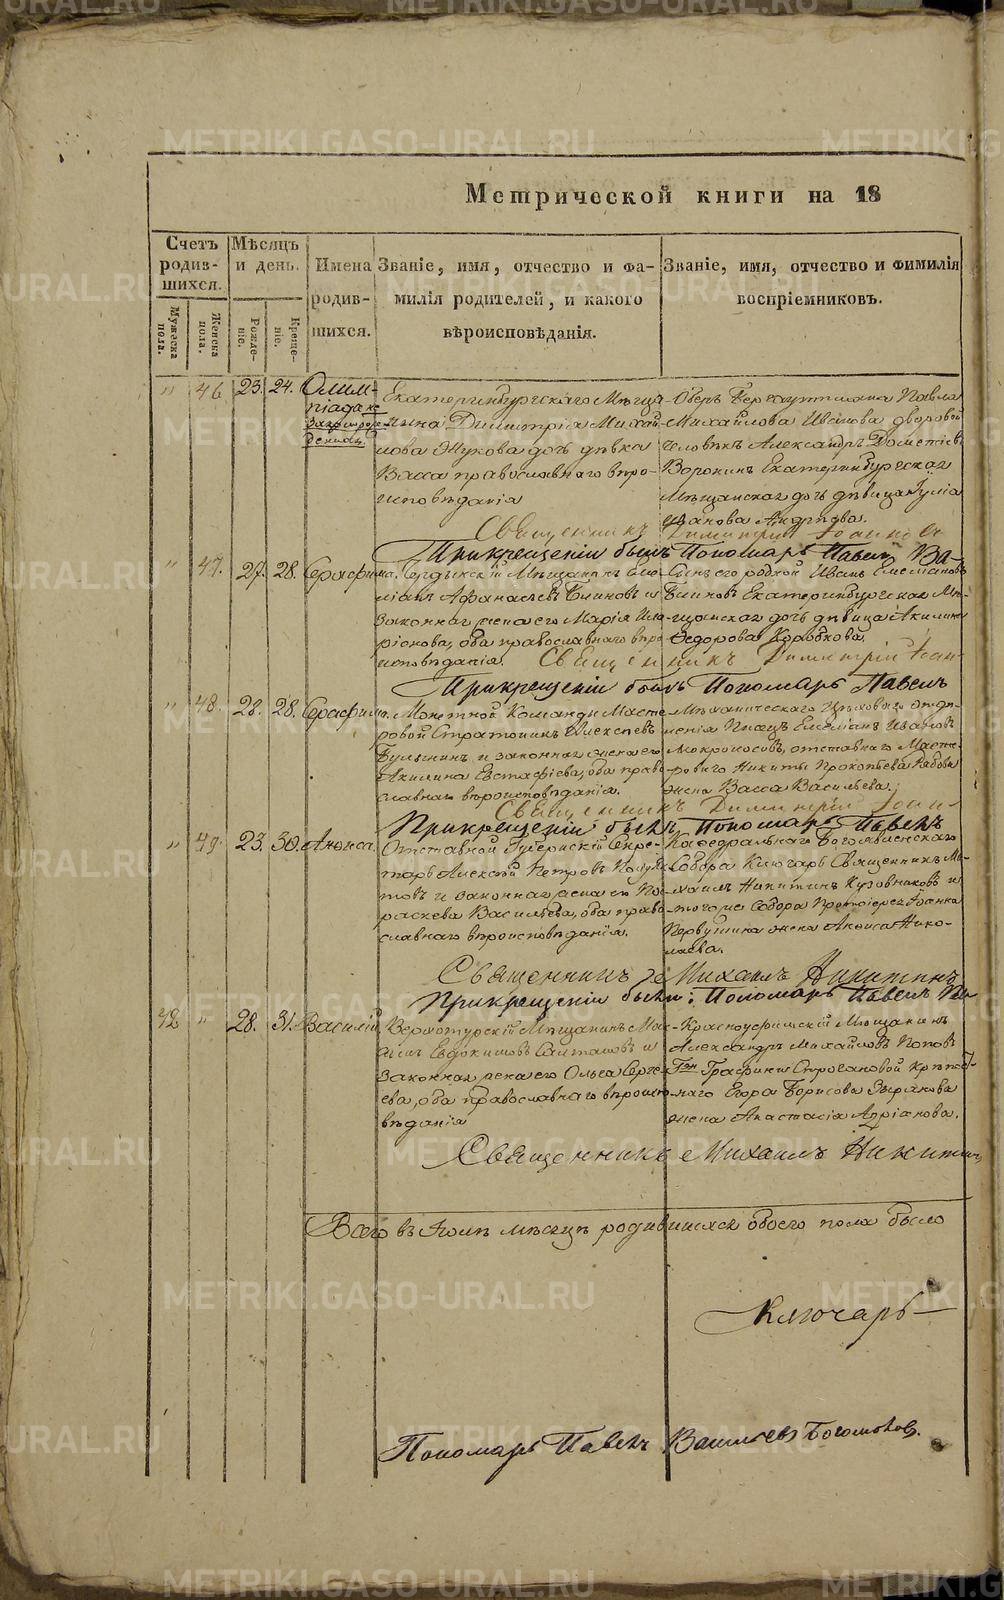 METRIKI.GASO-URAL.RU
Метрической книги на 18
Счетъ родив-шихся.
Мѣсяцъ и день.
Имена родив-шихся.
Званіе, имя, отчество и фа-
милія родителей, и какого
вѣроисповѣданія.
Званіе, имя, отчество и фимилія
воспріемниковъ.
Мужеска пола.
Женска пола.
Рожде-ніе.
Креще-ніе.
" 46 23. 24. Олим-піада не законорож-денная
Екатеринбургскаго Мѣща-
нина Димитрія Михай-
лова Жукова дочь дѣвка
Васса православнаго вѣро-
исповѣданія
Оберъ Бергауптмана Павла
Михайлова Иванова дворовой
человѣкъ Александръ
Воронинъ Екатеринбургская
Мѣщанская дочь дѣвица Юлія
Иванова Андреева.
Священникъ Димитрій
При крещеніи былъ Пономарь Павелъ Ва-
" 47. 27. 28. Серафима.
Мѣщанинъ Еме-
ліанъ Афанасьевъ Блиновъ и
законная жена его Марія Ила-
ріонова, оба православнаго вѣро
исповѣданія.
Сынъ его родной Иванъ Емелiановъ
Блиновъ Екатеринбургская Мѣ-
щанская дочь дѣвица Акилина
Федорова Коробкова.
Священникъ Димитрій Іоан-
При крещеніи былъ Пономарь Павелъ
" 48. 28. 28. Серафима.
Монетной Команды Масте-
ровой Стратоникъ Алексѣевъ
Булыгинъ и законная жена его
Акилина Евстафіева, оба право
славнаго вѣроисповѣданія.
Механическаго Цѣховаго отдѣ-
ленія Писецъ Емеліанъ Ивановъ
Мокроносовъ, отставнаго Масте-
роваго Никиты Прокопьева Рябова
жена Васса Васильева.
Священникъ Димитрій Іоан-
При крещеніи былъ Пономарь Павелъ
" 49. 23. 30. Анѳиса.
Отставной Губернскій Секре-
тарь Алексѣй Петровъ
и законная жена его Па-
раскева Васильева, оба право
славнаго вѣроисповѣданія.
Кафедральнаго Богоявленскаго
Собора Ключарь Священникъ Ми-
хаилъ Никитинъ Кузовниковъ и
тогоже Собора Протоіерея Іоанна
Первушина жена Анѳиса Нико-
лаева.
Священникъ Михаилъ Никитинъ
При крещеніи былъ Пономарь Павелъ
42 " 28. 31. Василій
Верхотурскій Мѣщанинъ
Евдокимовъ Салтановъ и
законная жена его Ольга Серге-
ева, оба православнаго вѣроиспо
вѣданія
Красноуфимскій Мѣщанинъ
Александръ Михайловъ Поповъ
Гжи Графини Строгановой Крѣпост-
наго Егора Борисова Зырянова
жена Анастасія Адріанова.
Священникъ Михаилъ Никитинъ
Всего въ Іюлѣ мѣсяцѣ родившихся обоего пола было
Ключарь
Пономарь Павелъ Васильевъ Богомоловъ.